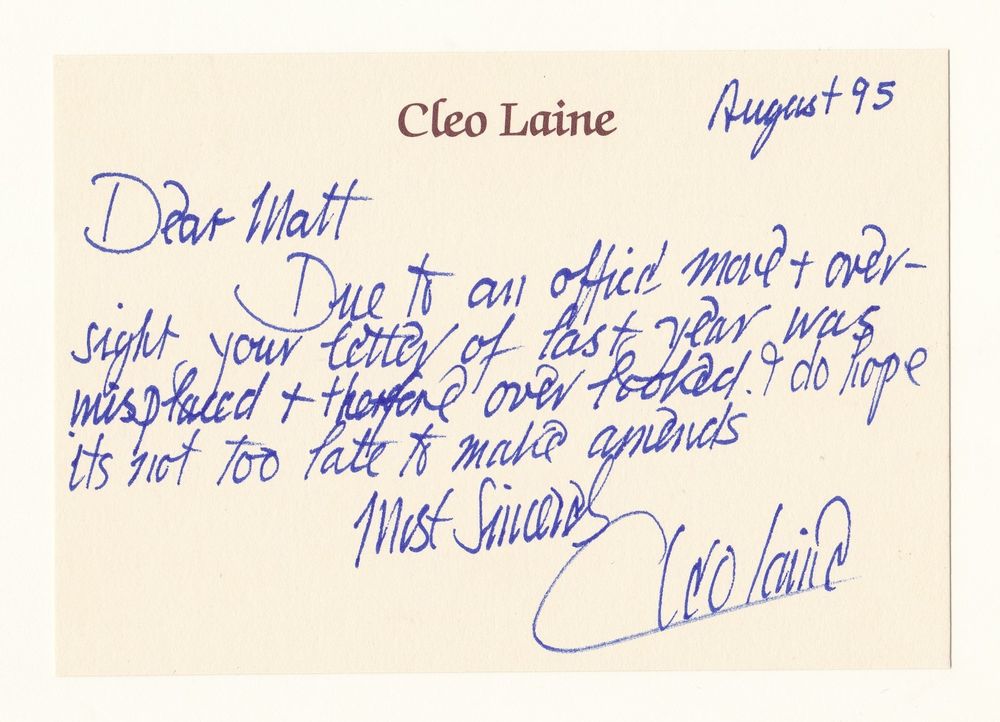 Cleo Laine
August 95
Dear Matt
Due to an office move + over-
sight, your letter of last year was
misplaced + therefore over looked. I do hope
its not too late to make amends
Most Sincerely
Cleo Laine